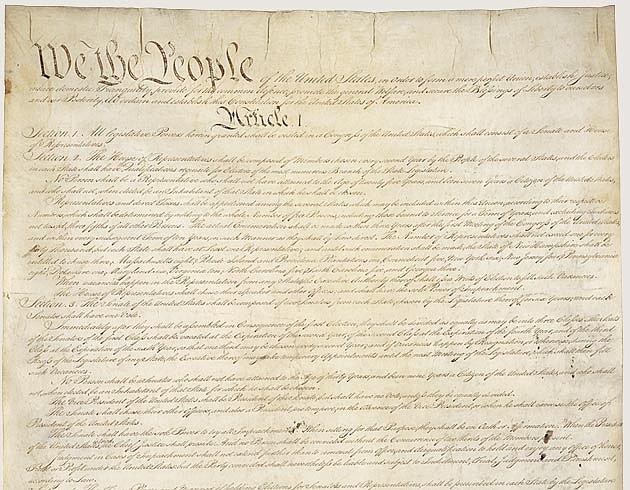 We the People of the United States, in Order to form a more perfect Union, establish Justice,
insure domestic Tranquility, provide for the common defence, promote the general Welfare, and secure the Blessings of Liberty to ourselves
and our Posterity, do ordain and establish this Constitution for the United States of America.
Article I
Section 1. All legislative Powers herein granted shall be vested in a Congress of the United States, which shall consist of a Senate and House
of Representatives.
Section 2. The House of Representatives shall be composed of Members chosen every second Year by the People of the several States, and the Electors
in each State shall have Qualifications requisite for Electors of the most numerous Branch of the State Legislature.
No Person shall be a Representative who shall not have attained to the Age of twenty five Years, and been seven Years a Citizen of the United States,
and who shall not, when elected, be an Inhabitant of that State in which he shall be chosen.
Representatives and direct Taxes shall be apportioned among the several States which may be included within this Union, according to their respective
Numbers, which shall be determined by adding to the whole Number of free Persons, including those bound to Service for a Term of Years, and excluding Indians
not taxed, three fifths of all other Persons. The actual Enumeration shall be made within three Years after the first Meeting of the Congress of the United States,
and within every subsequent Term of ten Years, in such Manner as they shall by Law direct. The Number of Representatives shall not exceed one for every
thirty Thousand, but each State shall have at Least one Representative; and until such enumeration shall be made, the State of New Hampshire shall be
entitled to chuse three, Massachusetts eight, Rhode Island and Providence Plantations one, Connecticut five, New York six, New Jersey four, Pennsylvania
eight, Delaware one, Maryland six, Virginia ten, North Carolina five, South Carolina five, and Georgia three.
When vacancies happen in the Representation from any State, the Executive Authority thereof shall issue Writs of Election to fill such Vacancies.
The House of Representatives shall chuse their Speaker and other Officers; and shall have the sole Power of Impeachment.
Section 3. The Senate of the United States shall be composed of two Senators from each State, chosen by the Legislature thereof, for six Years; and each
Senator shall have one Vote.
Immediately after they shall be assembled in Consequence of the first Election, they shall be divided as equally as may be into three Classes. The Seats
of the Senators of the first Class shall be vacated at the Expiration of the second Year, of the second Class at the Expiration of the fourth Year, and of the third
Class at the Expiration of the sixth Year, so that one third may be chosen every second Year; and if Vacancies happen by Resignation, or otherwise, during the
Recess of the Legislature of any State, the Executive thereof may make temporary Appointments until the next Meeting of the Legislature, which shall then fill
such Vacancies.
No Person shall be a Senator who shall not have attained to the Age of thirty Years, and been nine Years a Citizen of the United States, and who shall
not, when elected, be an Inhabitant of that State for which he shall be chosen.
The Vice President of the United States shall be President of the Senate, but shall have no Vote, unless they be equally divided.
The Senate shall chuse their other Officers, and also a President pro tempore, in the Absence of the Vice President, or when he shall exercise the Office of
President of the United States.
The Senate shall have the sole Power to try all Impeachments. When sitting for that Purpose, they shall be on Oath or Affirmation. When the President
of the United States is tried, the Chief Justice shall preside: And no Person shall be convicted without the Concurrence of two thirds of the Members present.
Judgment in Cases of Impeachment shall not extend further than to removal from Office, and disqualification to hold and enjoy any Office of honor,
Trust or Profit under the United States: but the Party convicted shall nevertheless be liable and subject to Indictment, Trial, Judgment and Punishment,
according to Law.